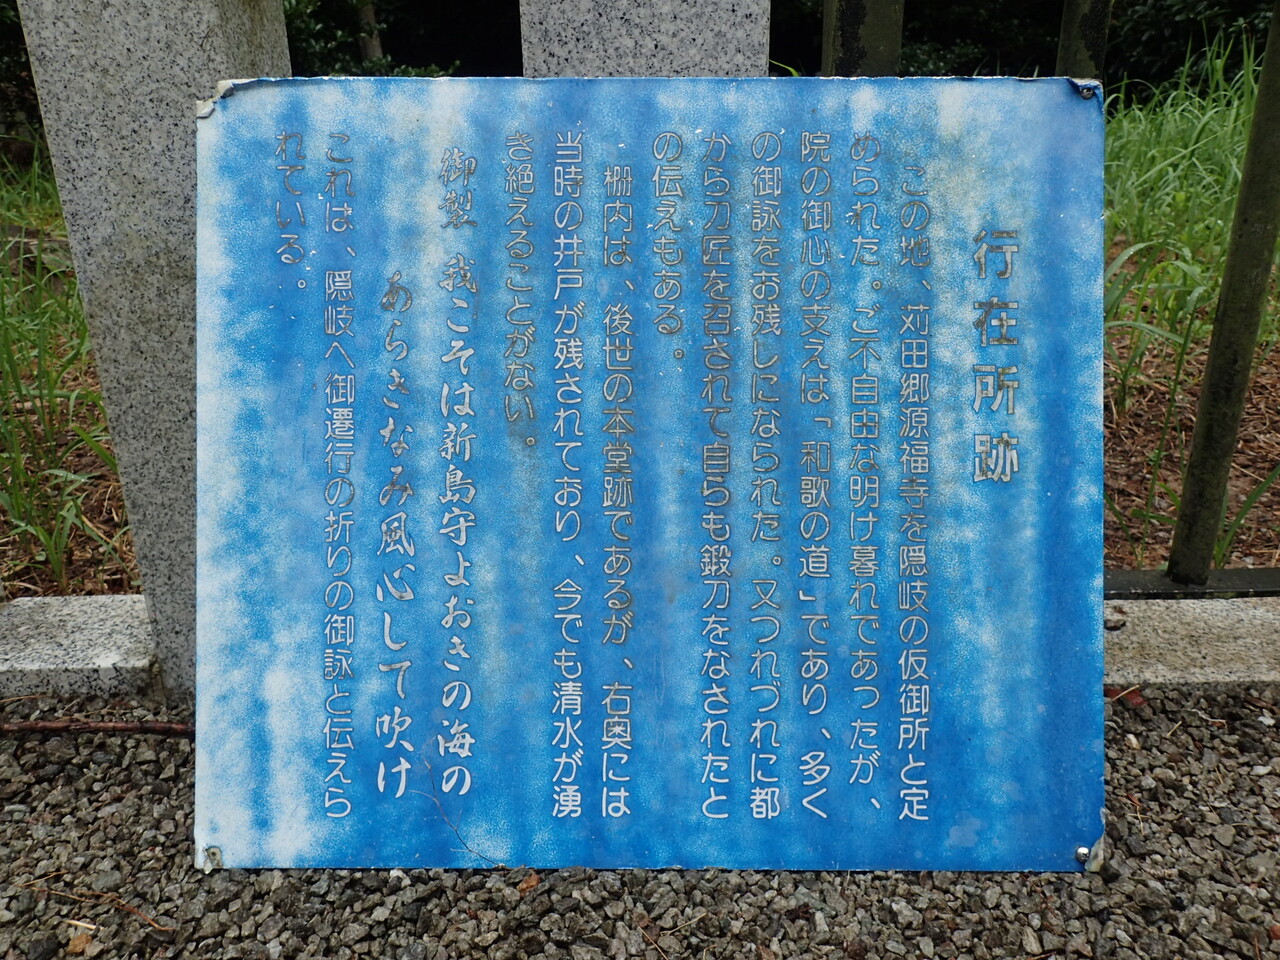 行在所跡
この地、苅田郷源福寺を隠岐の仮御所と定
められた。ご不自由な明け暮れであったが、
院の御心の支えは「和歌の道」であり、多く
の御詠をお残しになられた。又つれづれに都
から刀匠を召されて自らも鍛刀をなされたと
の伝えもある。
柵内は、後世の本堂跡であるが、右奥には
当時の井戸が残されており、今でも清水が湧
き絶えることがない。
御製　我こそは新島守よおきの海の
あらきなみ風心して吹け
これは、隠岐へ御遷行の折りの御詠と伝えら
れている。